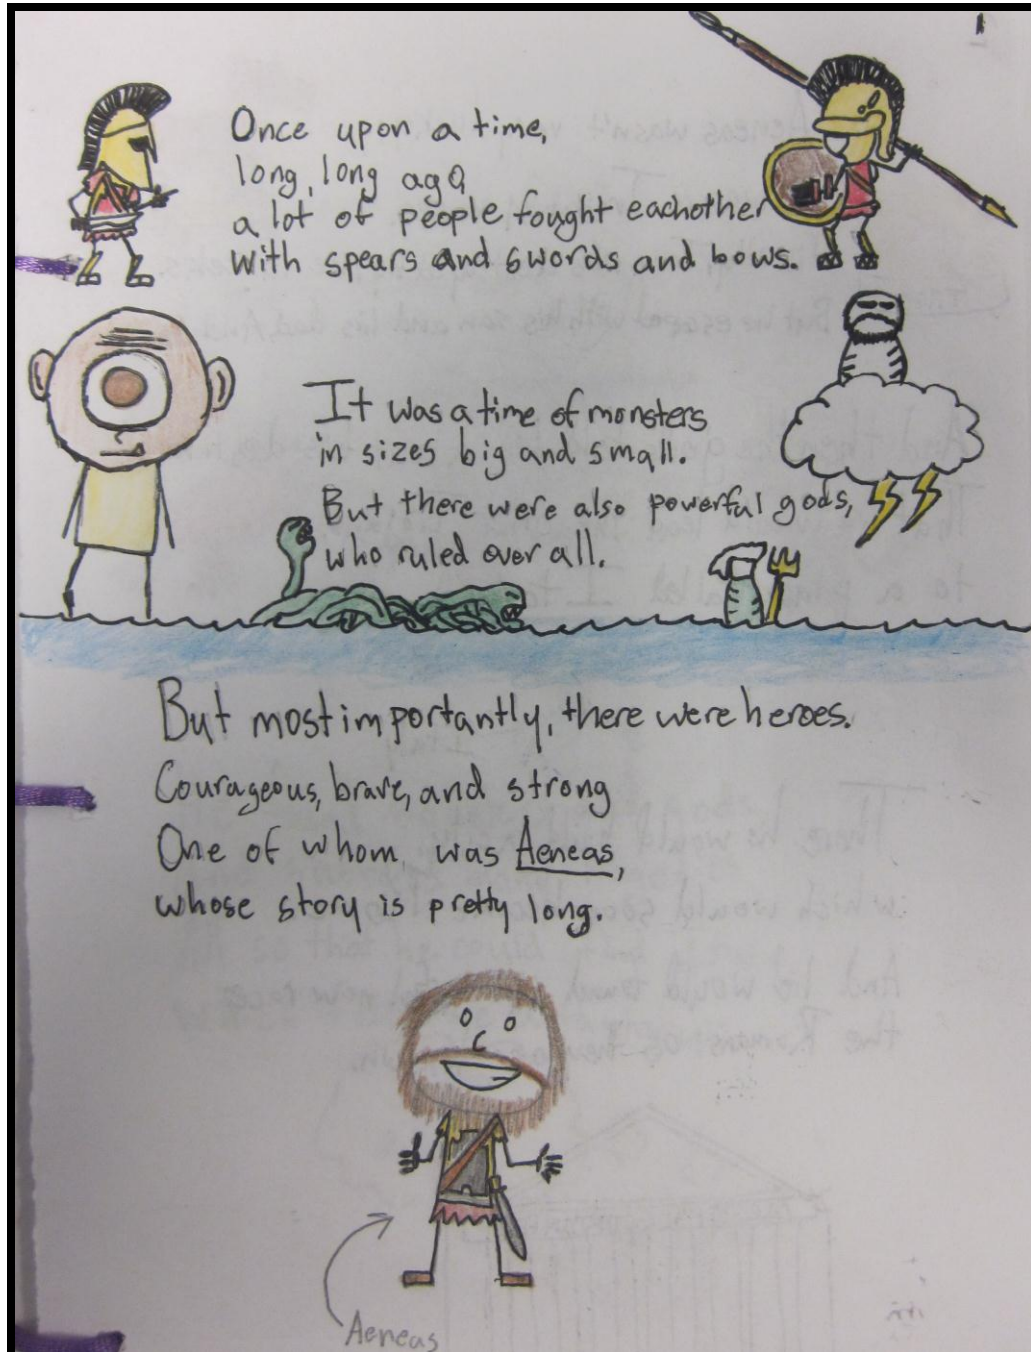 1
Once upon a time,
long, long ago,
a lot of people fought eachother
with spears and swords and bows.
It was a time of monsters
in sizes big and small.
But there were also powerful gods,
who ruled over all.
But most importantly, there were heroes.
Courageous, brave, and strong
One of whom was Aeneas,
whose story is pretty long.
Aeneas